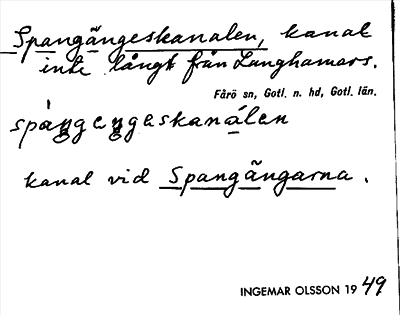 Spangängeskanalen, kanal
inte långt från Langhamars.
Fårö sn, Gotl. n. hd, Gotl. län.
spàngengeskanálen
kanal vid Spangängarna.
INGEMAR OLSSON 1949